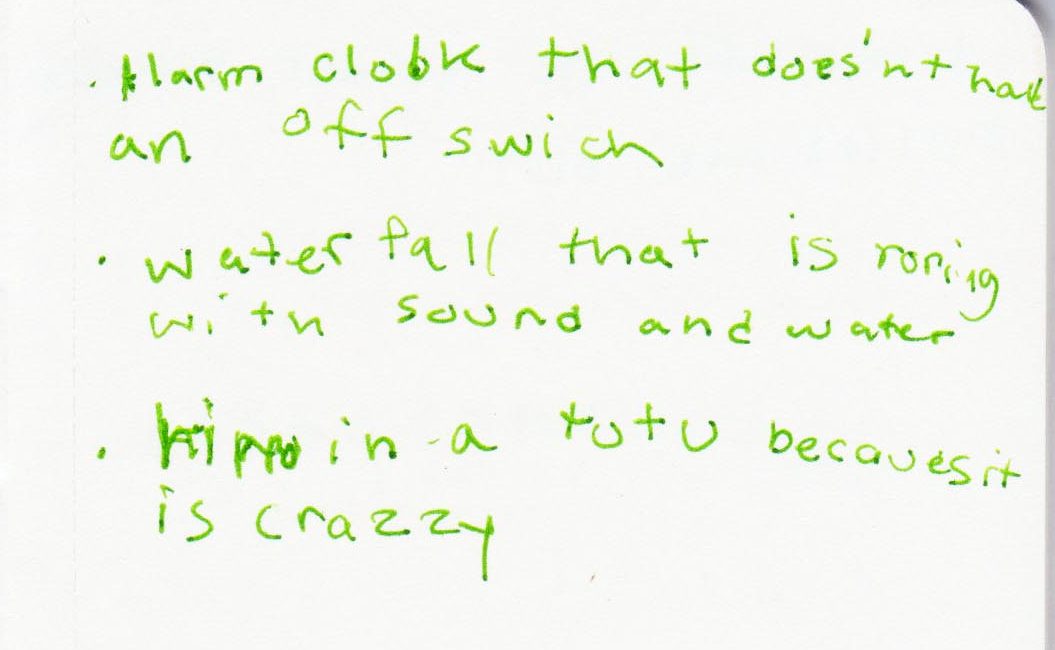 . Alarm clobk that does'nt have
an off swich
. water fall that is roring
with sound and water
. hippo in a tutu becaues it
is crazzy